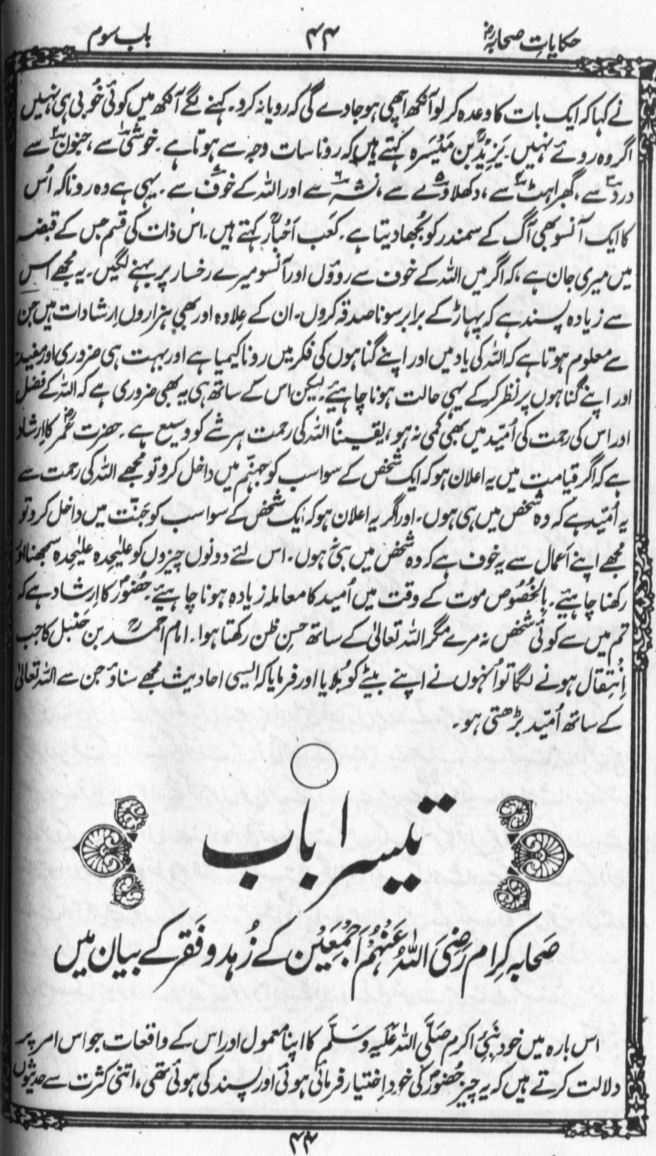 حکایات صحابہؓ ۴۴ باب سوم
نے کہا کہ ایک بات کا وعدہ کر لو آنکھ اچھی ہو جاوے گی کہ رویا نہ کرو۔ کہنے لگے آنکھ میں کوئی خوبی ہی نہیں
اگر وہ روئے نہیں۔ یزیدؒ بن میسرہ کہتے ہیں کہ رونا سات وجہ سے ہوتا ہے۔ خوشی۱ سے، جنون۲ سے
درد۳ سے، گھبراہٹ۴ سے، دکھلاوے۵ سے، نشہ۶ سے اور اللہ کے خوف۷ سے۔ یہی ہے وہ رونا کہ اُس
کا ایک آنسو بھی آگ کے سمندر کو بُجھا دیتا ہے۔ کعب احبارؓ کہتے ہیں۔ اس ذات کی قسم جس کے قبضہ
میں میری جان ہے، کہ اگر میں اللہ کے خوف سے روؤں اور آنسو میرے رخسار پر بہنے لگیں۔ یہ مجھے اس
سے زیادہ پسند ہے کہ پہاڑ کے برابر سونا صدقہ کروں۔ ان کے علاوہ اور بھی ہزاروں ارشادات ہیں جن
سے معلوم ہوتا ہے کہ اللہ کی یاد میں اور اپنے گناہوں کی فکر میں رونا کیمیا ہے اور بہت ہی ضروری اور مفید،
اور اپنے گناہوں پر نظر کر کے یہی حالت ہونا چاہیئے لیکن اس کے ساتھ ہی یہ بھی ضروری ہے کہ اللہ کے فضل
اور اس کی رحمت کی اُمید میں بھی کمی نہ ہو، یقیناً اللہ کی رحمت ہر شے کو وسیع ہے۔ حضرت عمرؓ کا ارشاد
ہے کہ اگر قیامت میں یہ اعلان ہو کہ ایک شخص کے سوا سب کو جہنم میں داخل کرو تو مجھے اللہ کی رحمت سے
یہ اُمید ہے کہ وہ شخص میں ہی ہوں۔ اور اگر یہ اعلان ہو کہ ایک شخص کے سوا سب کو جنّت میں داخل کرو تو
مجھے اپنے اعمال سے یہ خوف ہے کہ وہ شخص میں ہی نہ ہوں۔ اس لئے دونوں چیزوں کو علیٰحدہ علیٰحدہ سمجھنا اور
رکھنا چاہیئے۔ بالخصُوص موت کے وقت میں اُمید کا معاملہ زیادہ ہونا چاہیئے حضورؐ کا ارشاد ہے کہ
تم میں سے کوئی شخص نہ مرے مگر اللہ تعالیٰ کے ساتھ حسنِ ظن رکھتا ہوا۔ امام احمدؒ بن حنبل کا جب
اِنتقال ہونے لگا تو اُنہوں نے اپنے بیٹے کو بُلایا اور فرمایا کہ ایسی احادیث مجھے سناؤ جن سے اللہ تعالیٰ
کے ساتھ اُمید بڑھتی ہو۔
تیسرا باب
صحابہ کِرام رَضِیَ اللّٰہُ عَنہُم اَجمَعِین کے زُہد و فقر کے بیان میں
اس بارہ میں خود نبی اکرم صَلَّی اللّٰہُ عَلَیہِ وَسَلَّم کا اپنا معمول اور اس کے واقعات جو اس امر پر
دلالت کرتے ہیں کہ یہ چیز حضورؐ کی خود اختیار فرمائی ہوئی اور پسند کی ہوئی تھی، اتنی کثرت سے حدیثوں
۴۴